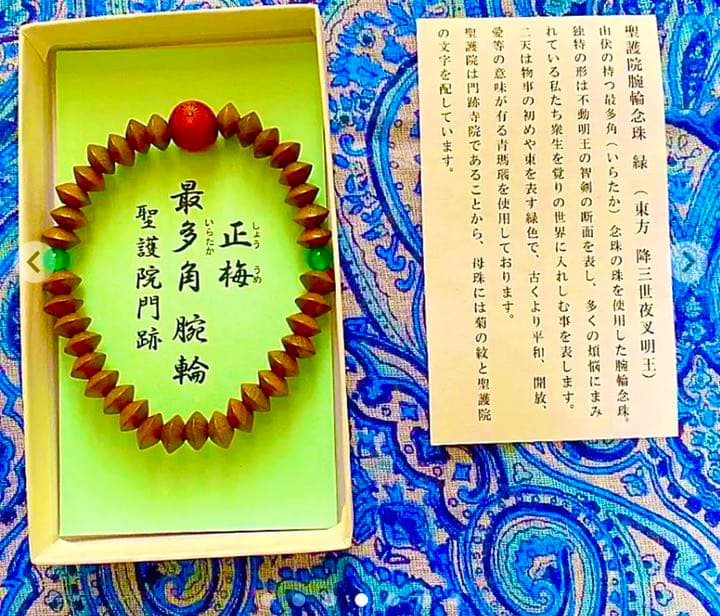 正梅
しょう うめ
最多角 腕輪
いらたか
聖護院門跡
聖護院腕輪念珠 緑 (東方 降三世夜叉明王)
山伏の持つ最多角(いらたか)念珠の珠を使用した腕輪念珠。
独特の形は不動明王の智剣の断面を表し、多くの煩悩にまみ
れている私たち衆生を覚りの世界に入れしむ事を表します。
二天は物事の初めや東を表す緑色で、古くより平和、開放、
愛等の意味が有る青瑪瑙を使用しております。
聖護院は門跡寺院であることから、母珠には菊の紋と聖護院
の文字を配しています。